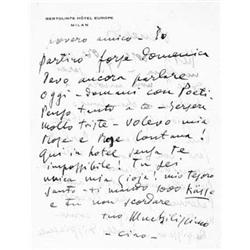 BERTOLINI'S HÔTEL EUROPE
MILAN
povero amico. Io
partirò forse Domenica
Devo ancora parlare
oggi - domani con Poeti.
Penso tanto a te - sempre
molto triste - volevo mia
e lontana!
Qui in hotel senza te
impossibile! Tu sei
unica mia gioja! mio tesoro
santo - ti mando 1000
e tu non scordare
tuo
- Ciao -